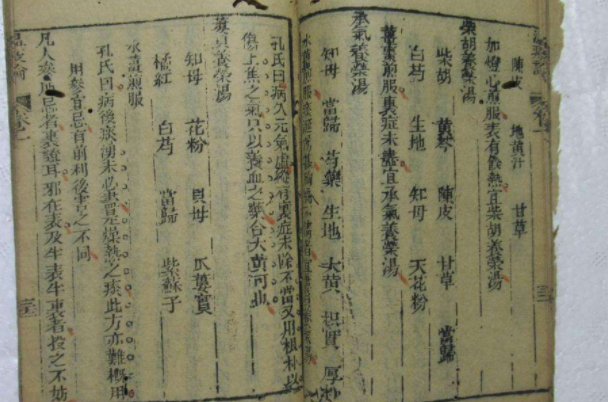 陳皮 地黄汁 甘草
加燈心煎服表有餘熱宜柴胡養榮湯
柴胡養榮湯
柴胡 黄芩 陳皮 甘草 當歸
白芍 生地 知母 天花粉
薑棗煎服裏症未盡宜承氣養榮湯
承氣養榮湯
知母 當歸 芍藥 生地 大黄 枳實 厚朴
孔氏曰病久元氣虛
裏症未除不當又用枳朴以
傷上焦之氣只以養血之藥合大黄可也
蔞貝養榮湯
知母 花粉 貝母 瓜蔞實
橘紅 白芍 當歸 紫蘇子
水薑煎服
孔氏曰病後痰湧未必盡是燥熱之痰此方亦難概用
用參宜忌有前利後害之不同
凡人參所忌者裏證耳邪在表及半表半裏者投之不妨